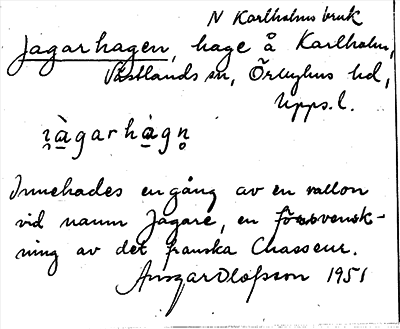 N Karlholms bruk
Jagarhagen, hage å Karlholm,
Västlands sn, Örbyhus hd,
Upps. l.
i̯à̱garhà̱gn̥
Innehades en gång av en vallon
vid namn Jagare, en försvensk-
ning av det franska Chasseur.
Ansgar Olofsson 1951